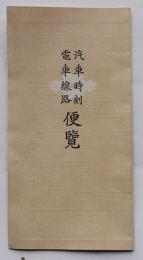 汽車時刻
電車線路
便覧